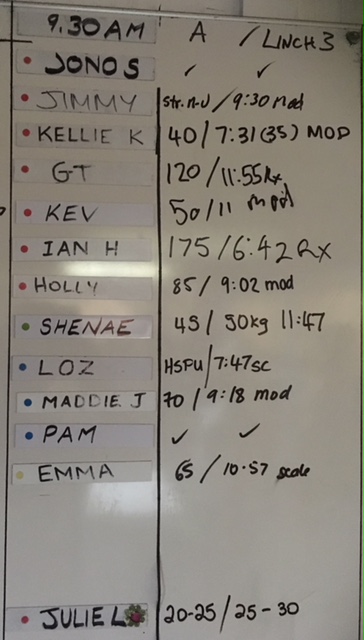 9.30AM A / LINCH 3
JONO S ✓ ✓
JIMMY str. n-u / 9:30 mod
KELLIE K 40 / 7:31 (35) MOD
GT 120 / 11:55 Rx
KEV 50 / 11 mod
IAN H 175 / 6:42 RX
HOLLY 85 / 9:02 mod
SHENAE 45 / 50kg 11:47
LOZ HSPU / 7:47 sc
MADDIE J 70 / 9:18 mod
PAM ✓ ✓
EMMA 65 / 10.57 scale
JULIE L 20-25 / 25-30